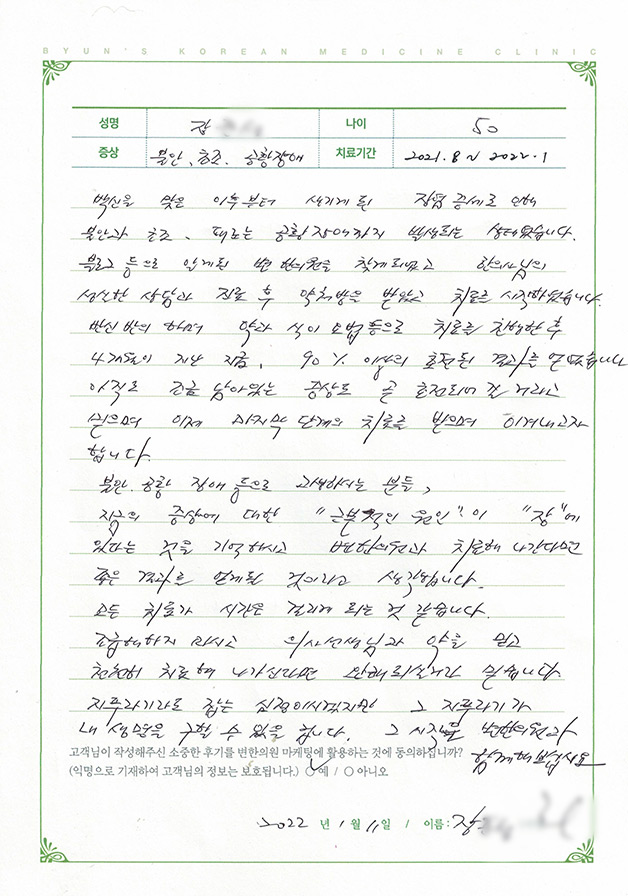 BYUN'S KOREAN MEDICINE CLINIC
성명 나이 50
증상 불안, 초조, 공황장애 치료기간 2021.8 ~ 2022.1
백신을 맞은 이후부터 생기게 된 장염 증세로 인해
불안과 초조, 때로는 공황장애까지 발생되는 상태였습니다.
블로그 등으로 알게된 변한의원을 찾게되었고 한의사님의
성실한 상담과 진료 후 약처방을 받았고 치료를 시작하였습니다.
반신반의 하며 약과 식이요법등으로 치료를 진행한 후
4개월이 지난 지금, 90% 이상의 호전된 결과를 얻었습니다
아직도 조금 남아있는 증상도 곧 호전되어 갈 거라고
믿으며 이제 마지막 단계의 치료를 받으며 이겨내고자
합니다.
불안.공황 장애등으로 고생하시는 분들,
지금의 증상에 대한 "근본적인 원인"이 "장"에
있다는 것을 기억하시고 변한의원과 치료해 나간다면
좋은 결과를 얻게될 것이라고 생각합니다.
모든 치료가 시간은 걸리게 되는 것 같습니다.
조급해하지 마시고 의사선생님과 약을 믿고
천천히 치료해 나가신다면 완쾌되실거라 믿습니다.
지푸라기라도 잡는 심정이시겠지만 그 지푸라기가
내 생명을 구할 수 있을 겁니다. 그 시작을 변한의원과
함께해보십시요
고객님이 작성해주신 소중한 후기를 변한의원 마케팅에 활용하는 것에 동의하십니까?
(익명으로 기재하여 고객님의 정보는 보호됩니다.) ○ 예 / ○ 아니오
2022 년 1 월 11 일 / 이름 : 장